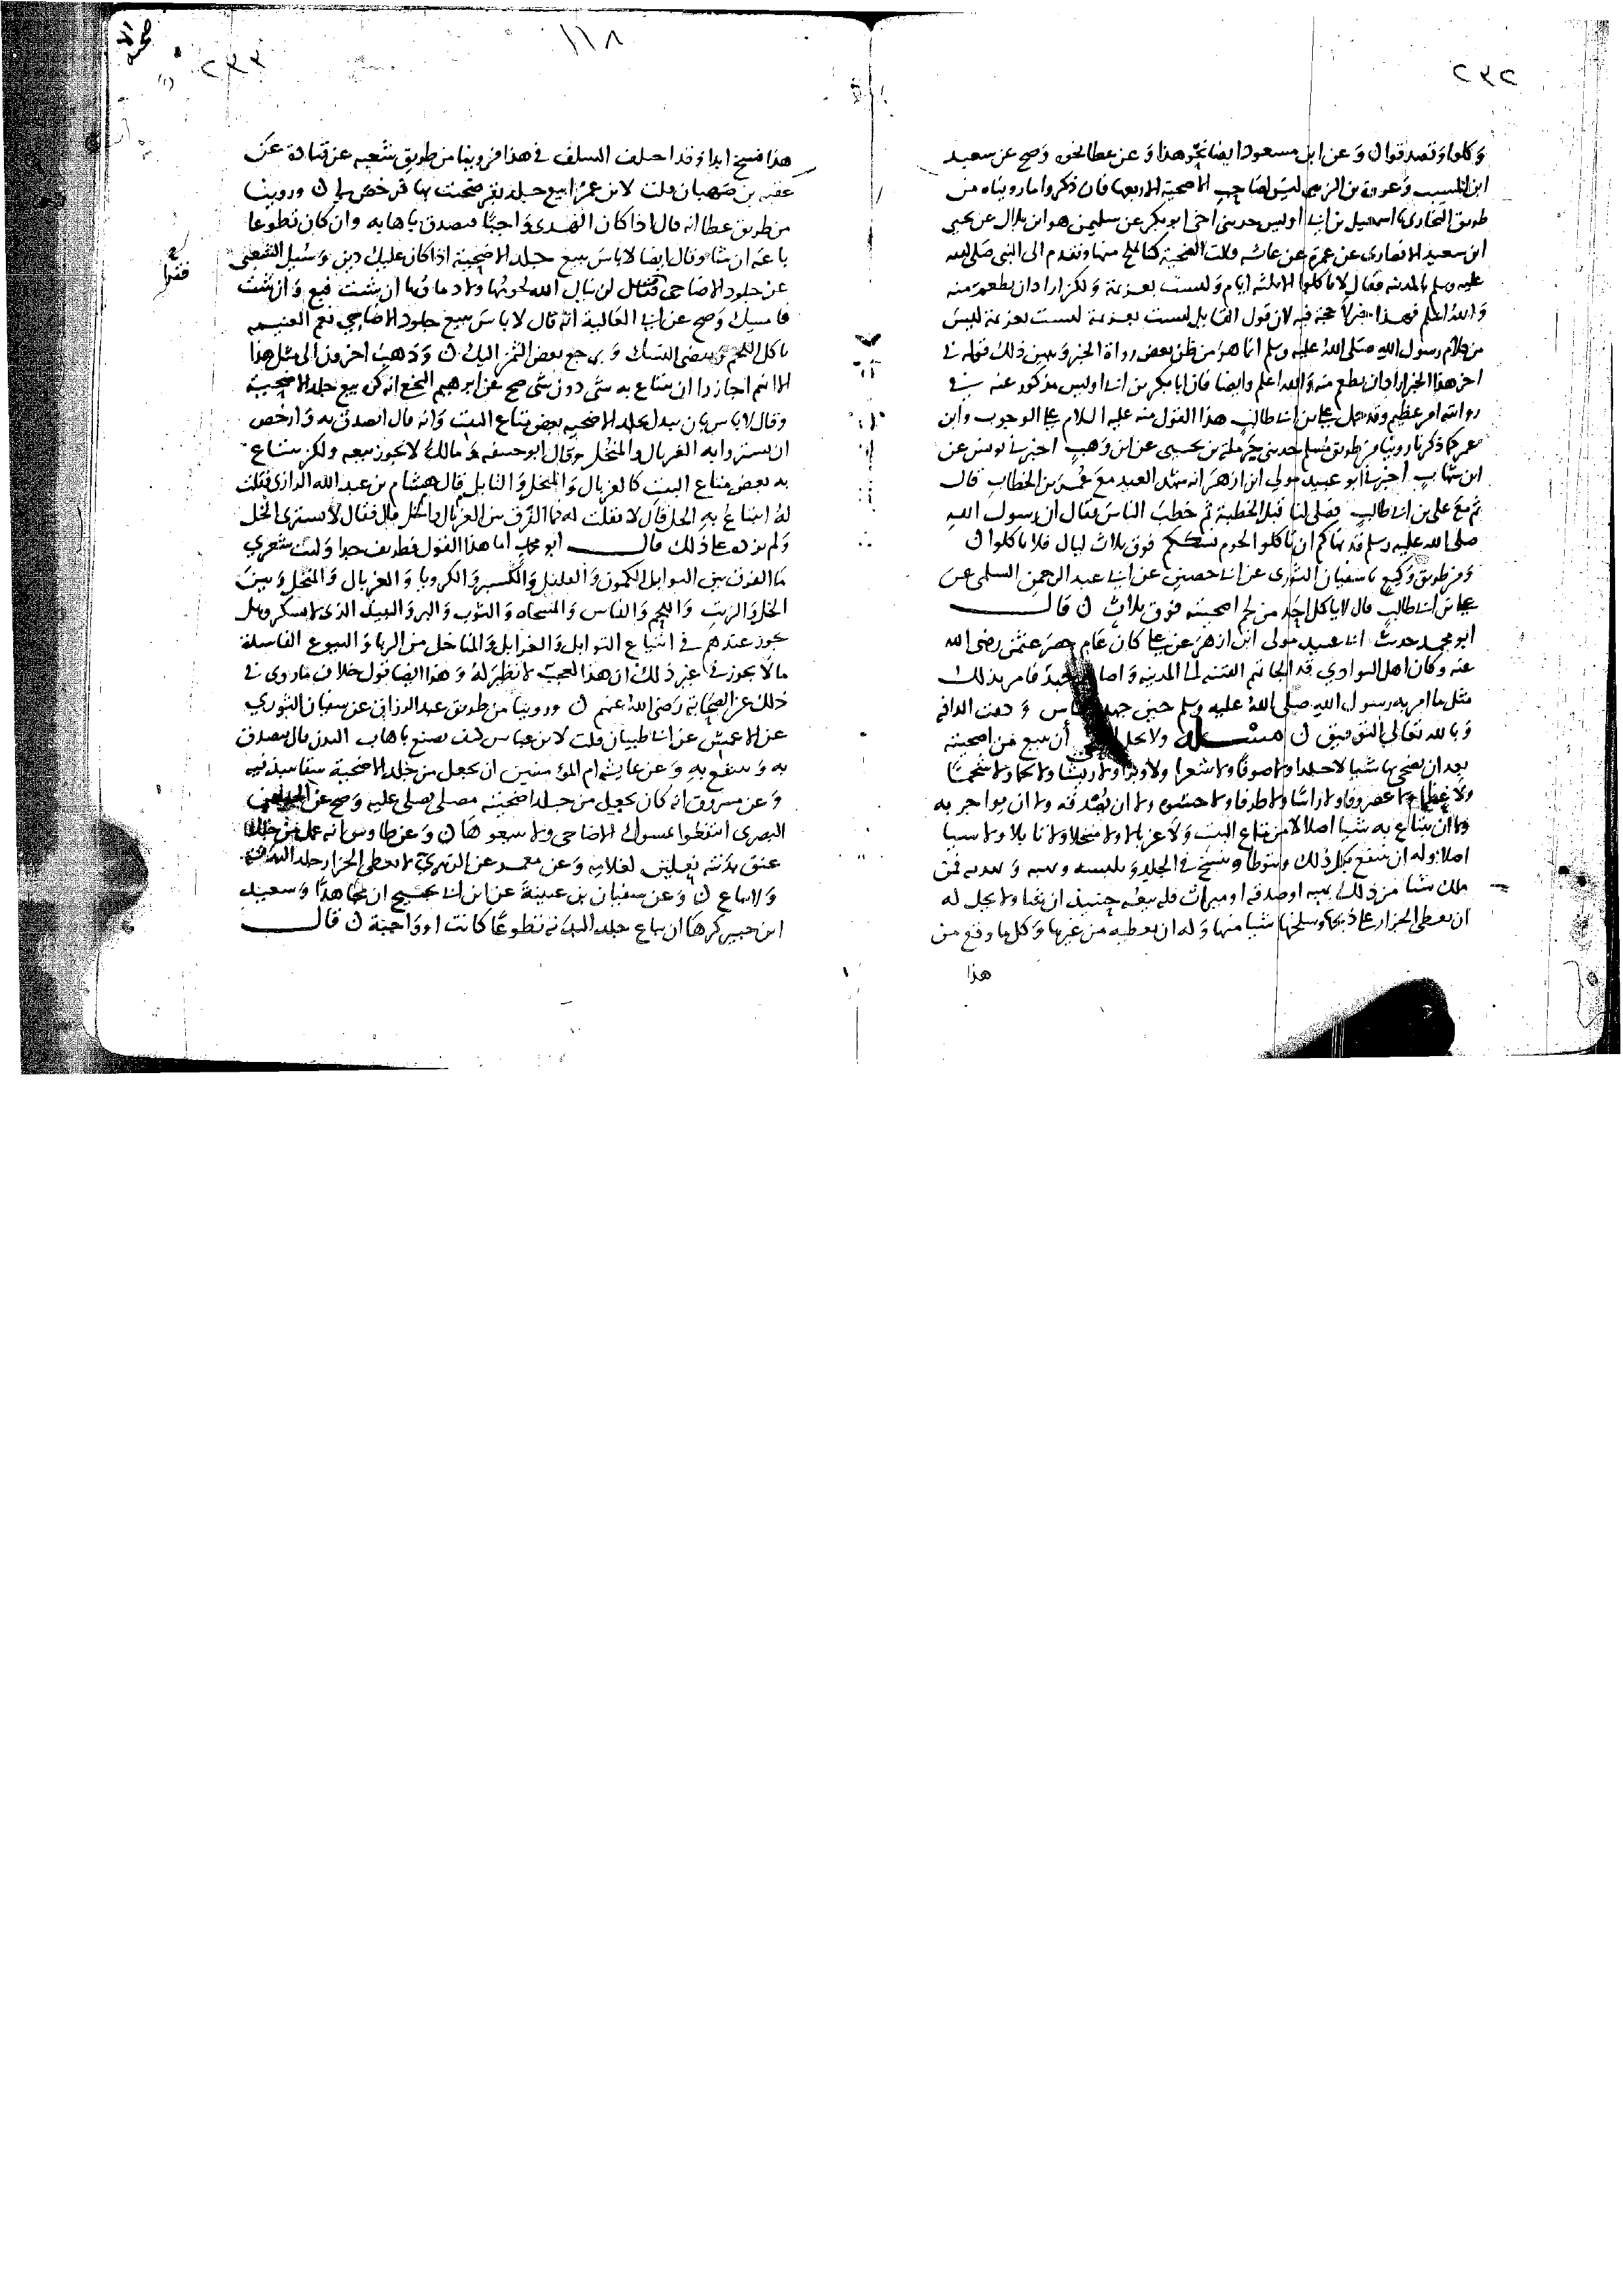 ٢٣٢
وكلوا وتصدقوا ن وعن ابن مسعود ايضا نحو هذا وعن عطا نحوه وصح عن سعيد
ابن المسيب وعروة بن الزبير ليس لصاحب الاضحية الا ربعها فان ذكروا ما رويناه من
طريق البخاري نا اسمعيل بن ابي اويس حدثني اخي ابو بكر عن سليمن هو ابن بلال عن يحيى
ابن سعيد الانصاري عن عمرة عن عائشه قالت الضحية كنا نملح منها ونقدم الى النبي صلى الله
عليه وسلم بالمدينه فقال لا تاكلوا الا ثلثه ايام وليست بعزيمة ولكن اراد ان يطعم منه
والله اعلم فهذا لا حجة فيه لان قول القايل ليست بعزيمة ليس
من كلام رسول الله صلى الله عليه وسلم انما هو من ظن بعض رواة الخبر وبين ذلك قوله في
اخر هذا الخبر اراد ان يطعم منه والله اعلم وايضا فان ابا بكر بن ابي اويس مذكور عنه في
روايته امر عظيم وقد حمل علي بن ابي طالب هذا القول منه عليه السلام على الوجوب وابن
عمر كما ذكرنا روينا من طريق مسلم حدثني حرملة بن يحيى عن ابن وهب اخبرني يونس عن
ابن شهاب اخبرني ابو عبيد مولى ابن ازهر انه شهد العيد مع عمر بن الخطاب قال
ثم مع علي بن ابي طالب فصلى لنا قبل الخطبة ثم خطب الناس فقال ان رسول الله
صلى الله عليه وسلم قد نهاكم ان تاكلوا لحوم نسككم فوق ثلاث ليال فلا تاكلوا ن
ومن طريق وكيع نا سفيان الثوري عن ابي حصين عن ابي عبد الرحمن السلمي عن
علي بن ابي طالب قال لا ياكل احد من لحم اضحيته فوق ثلاث ن قال
ابو محمد حديث ابي عبيد مولى ابن ازهر عن علي كان عام حصر عثمن رضي الله
عنه وكان اهل البوادي قد الجاتهم الفتنه الى المدينه واصابهم جهد فامر بذلك
مثل ما امر به رسول الله صلى الله عليه وسلم حين جهد الناس ودفت الدافه
وبالله تعالى التوفيق ن مسئلة ولا يحل أن يبيع من اضحيته
بعد ان يضحي بها شيا لا جلدا ولا صوفا ولا شعرا ولا وبرا ولا ريشا ولا لحما ولا شحما
ولا عظما ولا غضروفا ولا راسا ولا طرفا ولا حشوه ولا ان يصدقه ولا ان يواجر به
ولا ان يبتاع به شيا اصلا لا من متاع البيت ولا غربالا ولا منخلا ولا تابلا ولا شيا
اصلا وله ان ينتفع بكل ذلك ويتوطاه وينسخ في الجلد ويلبسه ويهبه ويهديه فمن
ملك شيا من ذلك بهبه او صدقه او ميراث فله بيعه حينيذ ان شا ولا يحل له
ان يعطي الجزار على ذبحها وسلخها شيا منها وله ان يعطيه من غيرها وكل ما وقع من
هذا
١١٨
٢٣٣
هذا فسخ ابدا وقد اختلف السلف في هذا فروينا من طريق شعبه عن قتادة عن
عقبه بن صهبان قلت لابن عمر ابيع جلد بقر ضحيت بها فرخص لي ن وروينا
من طريق عطا انه قال اذا كان الهدي واجبا تصدق باهابه وان كان تطوعا
باعه ان شا وقال ايضا لا باس ببيع جلد الاضحية اذا كان عليك دين وسئل الشعبي
عن جلود الاضاحي فقال لن ينال الله لحومها ولا دماوها ان شئت فبع وان شئت
فامسك وصح عن ابي العالية انه قال لا باس ببيع جلود الاضاحي نعم الغنيمه
تاكل اللحم وتقضي النسك ويرجع بعض الثمن اليك ن وذهب اخرون الى مثل هذا
الا انهم اجازوا ان يبتاع به شي دون شي صح عن ابرهيم النخعي انه كره بيع جلد الاضحية
وقال لا باس بان يبدل بجلد الاضحيه بعض متاع البيت وانه قال تصدق به وارخص
ان يشتروا به الغربال والمنخل وقال ابو حنيفه ومالك لا يجوز بيعه ولكن يبتاع
به بعض متاع البيت كالغربال والمنخل والتابل قال هشام بن عبد الله الرازي فقلت
له ايبتاع به الخل قال لا فقلت له فما الفرق بين الغربال والخل قال فقال لا تشتري الخل
ولم يزده على ذلك قال ابو محمد اما هذا القول فطريف جدا وليت شعري
ما الفرق بين التوابل الكمون والفلفل والكسبر والكرويا والغربال والمنخل وبين
الخل والزيت واللحم والفاس والمسحاه والثوب والبر والنبيذ الذي لا يسكر وهل
يجوز عندهم في ابتياع التوابل والغرابل والمناخل من الربا والبيوع الفاسدة
ما لا يجوز في غير ذلك ان هذا لعجب لا نظير له وهذا ايضا قول خلاف ما روي في
ذلك عن الصحابة رضي الله عنهم ن وروينا من طريق عبد الرزاق عن سفيان الثوري
عن الاعمش عن ابي ظبيان قلت لابن عباس كيف نصنع باهاب البدن قال يتصدق
به وينتفع به وعن عايشه ام المؤمنين ان يجعل من جلد الاضحية سقا ينبذ فيه
وعن مسروق انه كان يجعل من جلد اضحيته مصلى يصلي عليه وصح عن الحسن
البصري انتفعوا بمسوك الاضاحي ولا تبيعوها ن وعن طاوس انه عمل من جلد
عنق بدنته نعلين لغلامه وعن معمر عن الزهري لا يعطى الجزار جلد البدنة
ولا يباع ن وعن سفيان بن عيينة عن ابن ابي نجيح ان مجاهدا وسعيد
ابن جبير كرها ان يباع جلد البدنة تطوعا كانت او واجبة ن قال